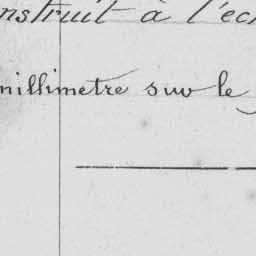 nstruit à l'éc
millimetre sur le